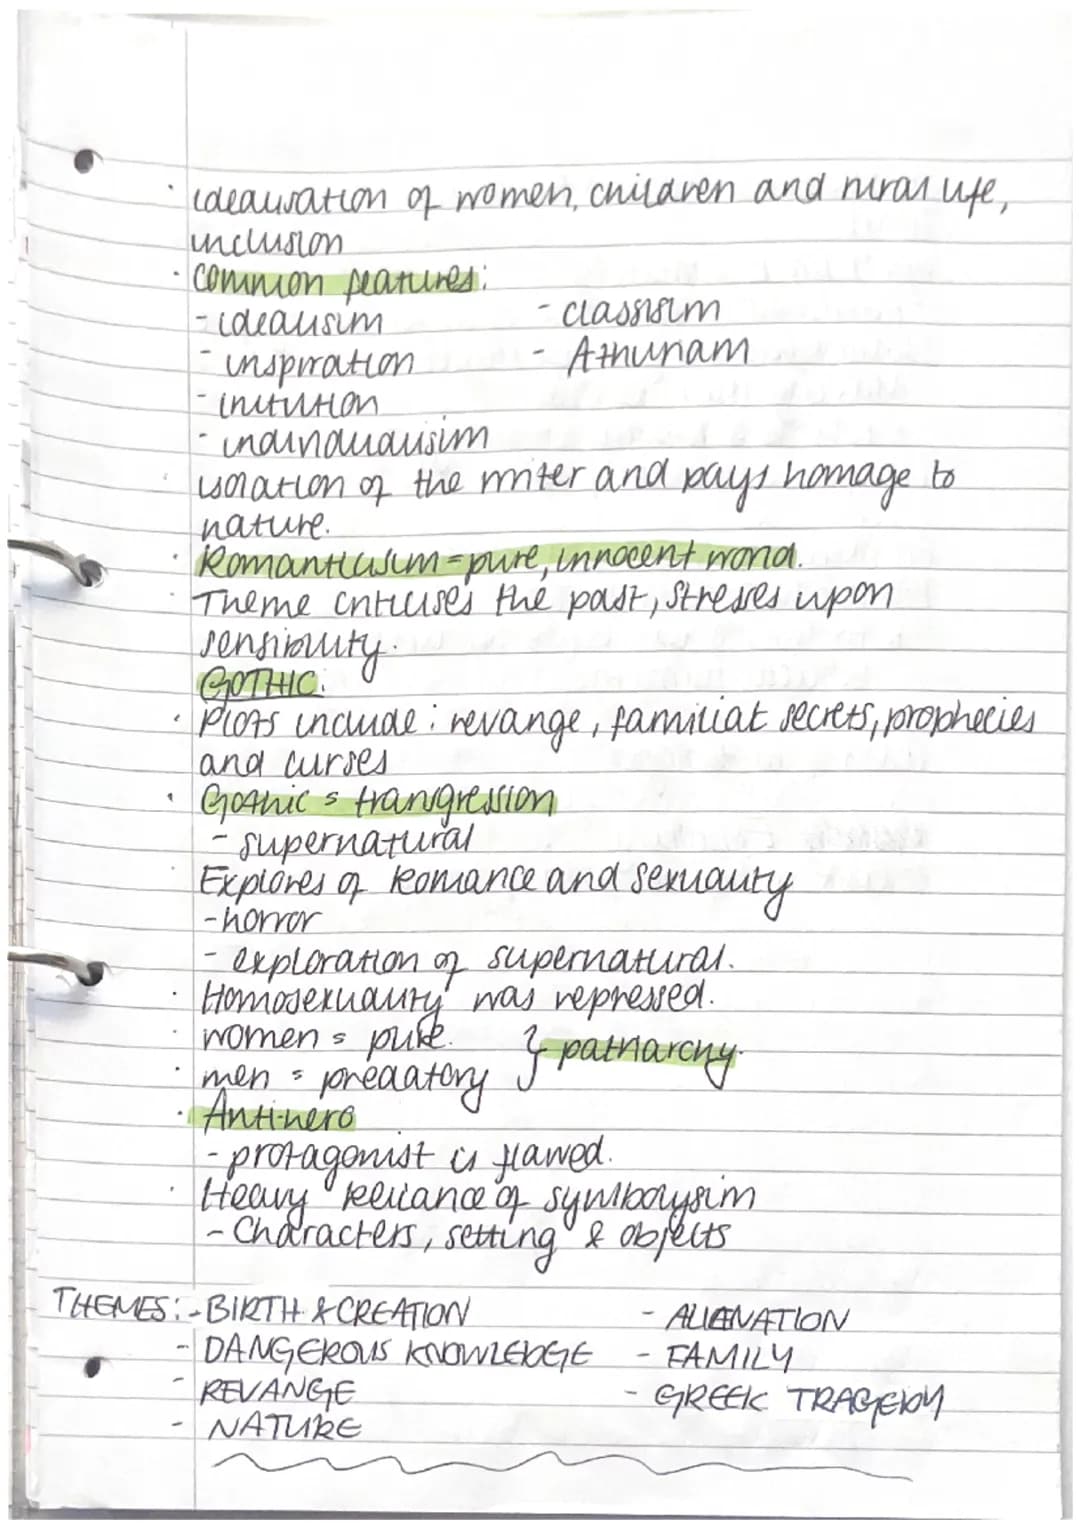 · idealisation of women, children and rural life,
inclusion
· common features:
- idealisim - classisim
- inspiration - Arthuriam
- intution
- individualisim
· isolation of the writer and pays homage to
nature.
· Romanticisim = pure, innocent world.
· Theme criticises the past, stresses upon
sensibility.
GOTHIC:
· Plots include: revange, familiat secrets, prophecies
and curses
· Gothic = trangression
- supernatural
Explores of Romance and Sexuality
- horror
- exploration of supernatural.
· Homosexuality was repressed.
· women = pure. } patriarchy.
· men = predatory
· Anti-hero
- protagonist is flawed.
· Heavy Reliance of symbolysim
- Characters, setting & objects
THEMES: - BIRTH & CREATION - ALIENATION
- DANGEROUS KNOWLEDGE - FAMILY
- REVANGE - GREEK TRAGEDY
- NATURE